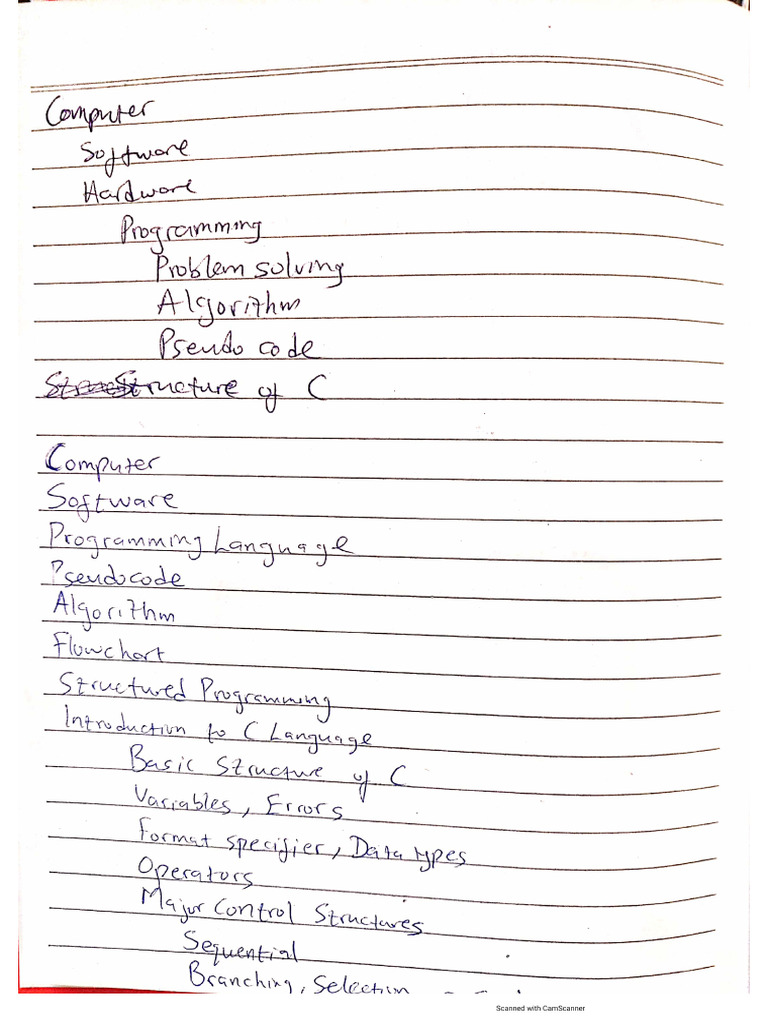 Computer
Software
Hardware
Programming
Problem solving
Algorithm
Pseudo code
Structure of C
Computer
Software
Programming Language
Pseudocode
Algorithm
Flowchart
Structured Programming
Introduction to C Language
Basic Structure of C
Variables, Errors
Format specifier, Data types
Operators
Major Control Structures
Sequential
Branching, Selection
Scanned with CamScanner